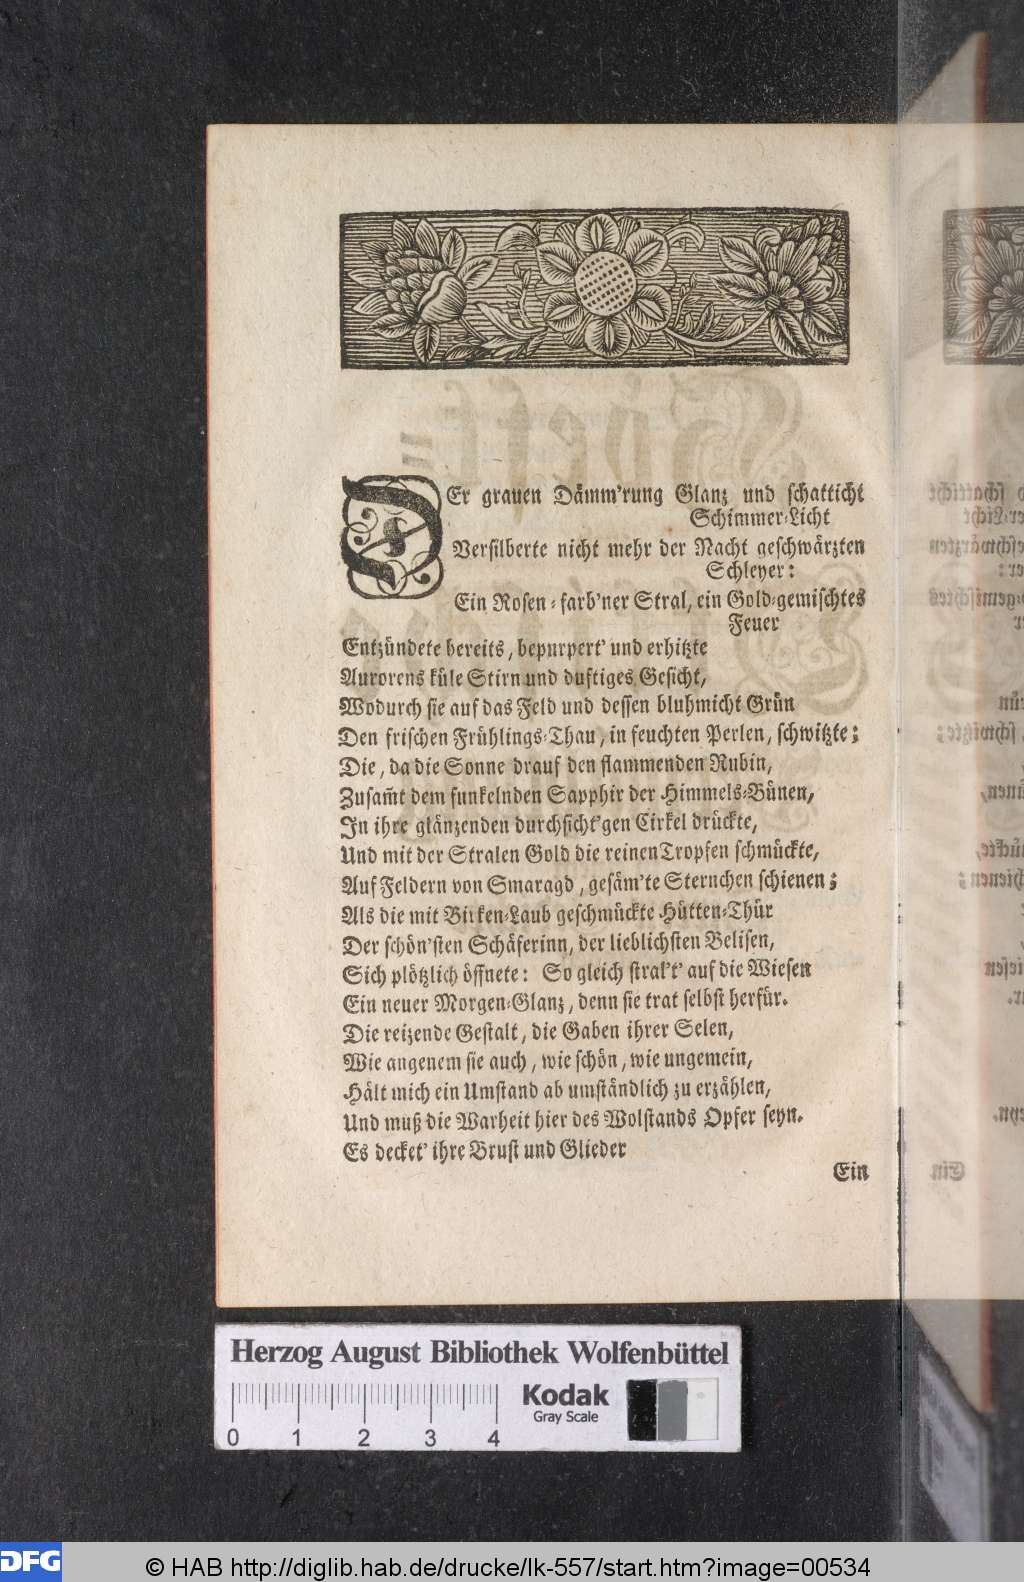 DEr grauen Dämm'rung Glanz und schatticht
Schimmer-Licht
Versilberte nicht mehr der Nacht geschwärzten
Schleyer:
Ein Rosen-farb'ner Stral, ein Gold-gemischtes
Feuer
Entzündete bereits, bepurpert' und erhitzte
Aurorens küle Stirn und duftiges Gesicht,
Wodurch sie auf das Feld und dessen bluhmicht Grün
Den frischen Frühlings-Thau, in feuchten Perlen, schwitzte;
Die, da die Sonne drauf den flammenden Rubin,
Zusam̃t dem funkelnden Sapphir der Himmels-Bünen,
In ihre glänzenden durchsicht'gen Cirkel drückte,
Und mit der Stralen Gold die reinen Tropfen schmückte,
Auf Feldern von Smaragd, gesäm'te Sternchen schienen;
Als die mit Birken-Laub geschmückte Hütten-Thür
Der schön'sten Schäferinn, der lieblichsten Belisen,
Sich plötzlich öffnete: So gleich stral't' auf die Wiesen
Ein neuer Morgen-Glanz, denn sie trat selbst herfür.
Die reizende Gestalt, die Gaben ihrer Selen,
Wie angenem sie auch, wie schön, wie ungemein,
Hält mich ein Umstand ab umständlich zu erzählen,
Und muß die Warheit hier des Wolstands Opfer seyn.
Es decket' ihre Brust und Glieder
Ein
Herzog August Bibliothek Wolfenbüttel
Kodak
Gray Scale
0 1 2 3 4
DFG
© HAB http://diglib.hab.de/drucke/lk-557/start.htm?image=00534